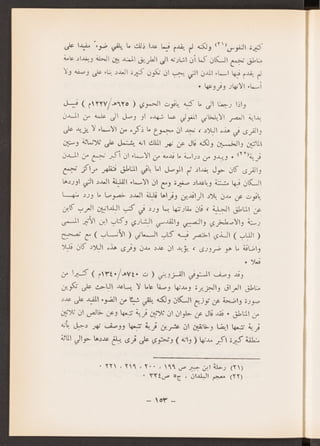 كثيرة النفوس(٢١) ولكنه لم يقدم فيما عدا ذلك ما يلقي ضوء مفيدا على
مناطق تجمع السكان كما أن اشارته الى الطريق الممتد بين الحلة وبغداد عامة
لم يقدم فيها اسماء المدن التي يجب ان تكون كثيرة العدد بناء على وصفه ولا
أسماء الانهار وفروعها ٠
واذا رجعنا الى ما كتبه ياقوت الحموي ( ٦٢٥هـ/١٢٢٧م ) قبيل
بداية العصر الايلخاني المغولي عما شهده او وصل الى علمه من المدن
والقرى في هذه البلاد ، نجد ان مجموع ما ذكره من الاسماء لا يزيد على
المائتين والخمسين ولكنه قال عن نهر الملك انه يشتمل على ثلاثمائة وستين
قرية(٢٢) ٠ ويبدو من دراسة ما قدمه من الاسماء ان أكبر تجمع من المدن
والقرى كان حول بغداد ثم الموصل اما باقي المناطق فتظهر مراكز تجمع
السكان فيها مشتتة وباعداد صغيرة ومع ان الاسماء القليلة العدد التي اوردها
ياقوت عن مدن بلاد الرافدين وقراها قليلة العدد خصوصا ما ورد منها
عن المناطق الجبلية ، فان مقارنتها بما ورد في كتب البلدانيين العرب كابن
رستة والاصطخري والمقدسي البشاري وكتاب ابن الأثير المسمى
( اللباب ) الذي اختصر فيه كتاب السمعاني ( الأنساب ) مع تصحيح
واضافة ما هو ضروري ، يؤيد ان عدد مدن وقرى هذه البلاد كان قليلا
فعلا ٠
وقد وصف المستوفي القزويني ( ت ٧٤٠هـ/١٣٤٠م ) كثيرا من
مناطق العراق والجزيرة ومدنها وصفا عاما لا يساعد الباحث على تكوين
صورة واضحة عن توزيع السكان ولكنه يلقي شيئا من الضوء المفيد على عدد
من المناطق ٠ فقد قال عن حلوان ان ثلاثين قرية تتبعها وعن خالص ان ثلاثين
قرية تتبعها ايضا وخانقين ان عشرين قرية تتبعها ووصف نهر دجيل بأنه
منطقة كبيرة اكبر مدنها ( وانه ) وتحتوي على قرى يبلغ عددها حوالي المائة
(٢١) رحلة ابن جبير ص ١٩٩ ، ٢٠٠ ، ٢١٩ ، ٢٢١ ٠
(٢٢) معجم البلدان ، ج٥ ص٣٢٤ ٠
– ١٥٣ –